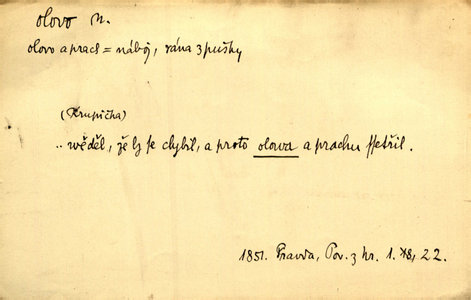 olovo n.
olovo a prach = náboj, rána z pušky
(Krupička)
.. wěděl, že by se chybil, a proto olowa a prachu ssetřil.
1851. Pravda, Pov. z kr. 1. 22.